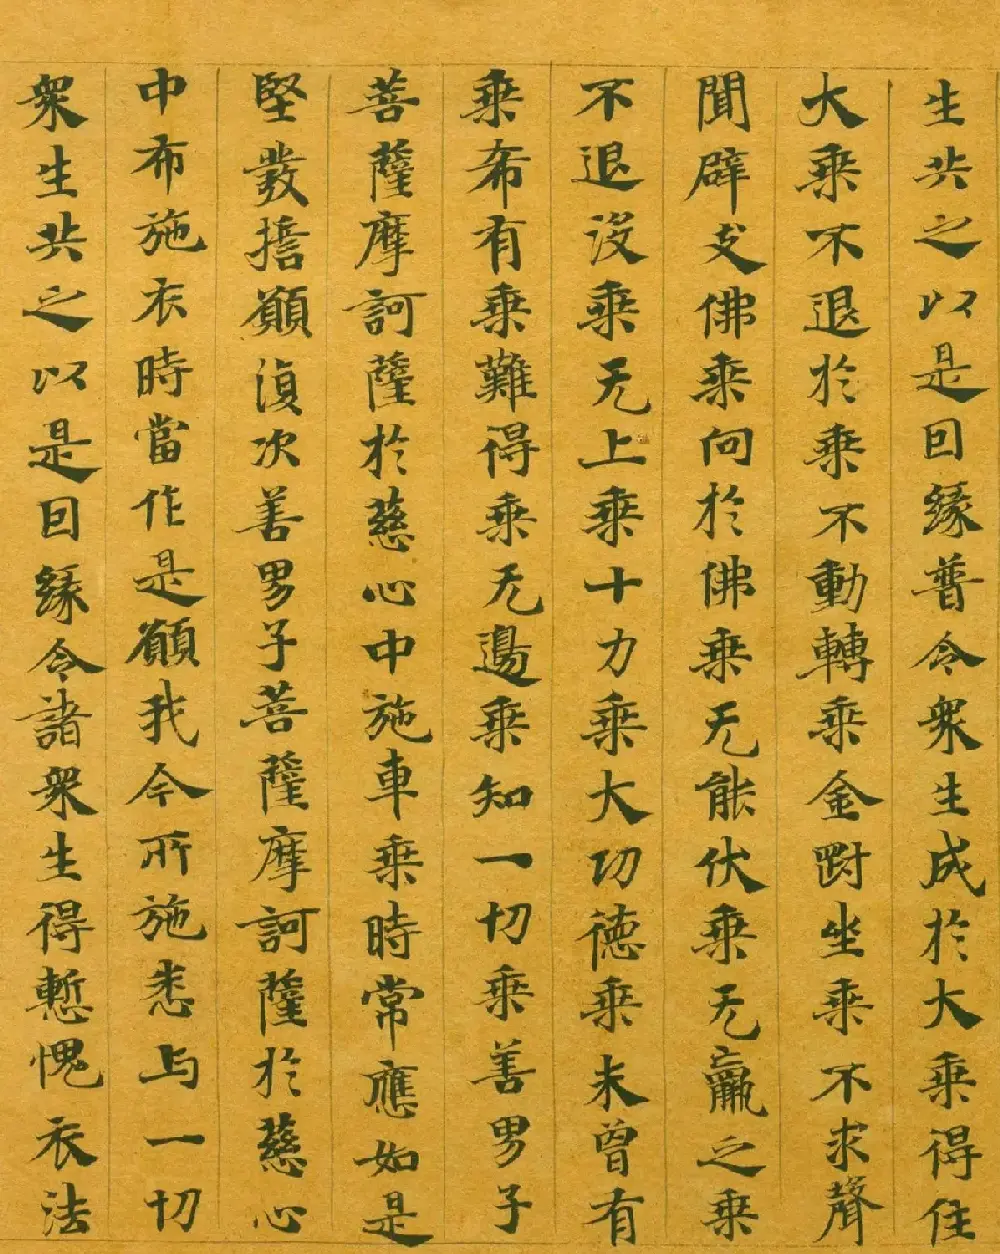 生共之以是因緣普令衆生成於大乗得住
大乗不退於乗不動轉乗金剛坐乗不求聲
聞辟支佛乗向於佛乗无能伏乗无羸之乗
不退没乗无上乗十力乗大功徳乗未曾有
乗希有乗難得乗无邊乗知一切乗善男子
菩薩摩訶薩於慈心中施車乗時常應如是
堅發擔願復次善男子菩薩摩訶薩於慈心
中布施衣時當作是願我今所施悉与一切
衆生共之以是因緣令諸衆生得慙愧衣法